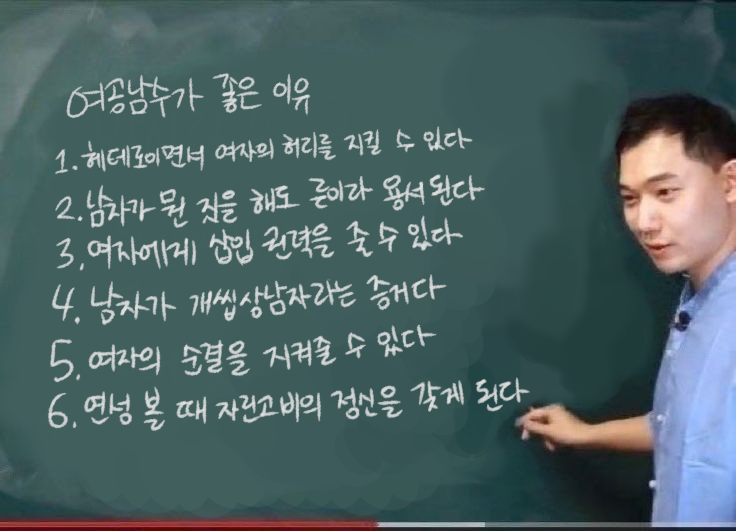 여공남수가 좋은 이유
1. 헤테로이면서 여자의 허리를 지킬 수 있다
2. 남자가 뭔 짓을 해도 른이라 용서된다
3. 여자에게 삽입 권력을 줄 수 있다
4. 남자가 개씹상남자라는 증거다
5. 여자의 순결을 지켜줄 수 있다
6. 연성 볼 때 자린고비의 정신을 갖게 된다